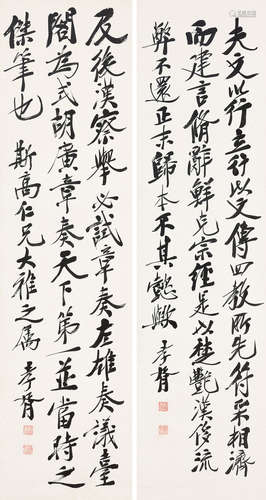 夫文以行立行以文傳四教所先符采相濟
而建言脩辭鮮克宗經是以楚艷漢侈流
弊不還正末歸本不其懿歟 孝胥
及後漢察舉必試章奏左雄奏議臺
閣為式胡廣章奏天下第一並當時之
傑筆也 斯高仁兄大雅之屬 孝胥